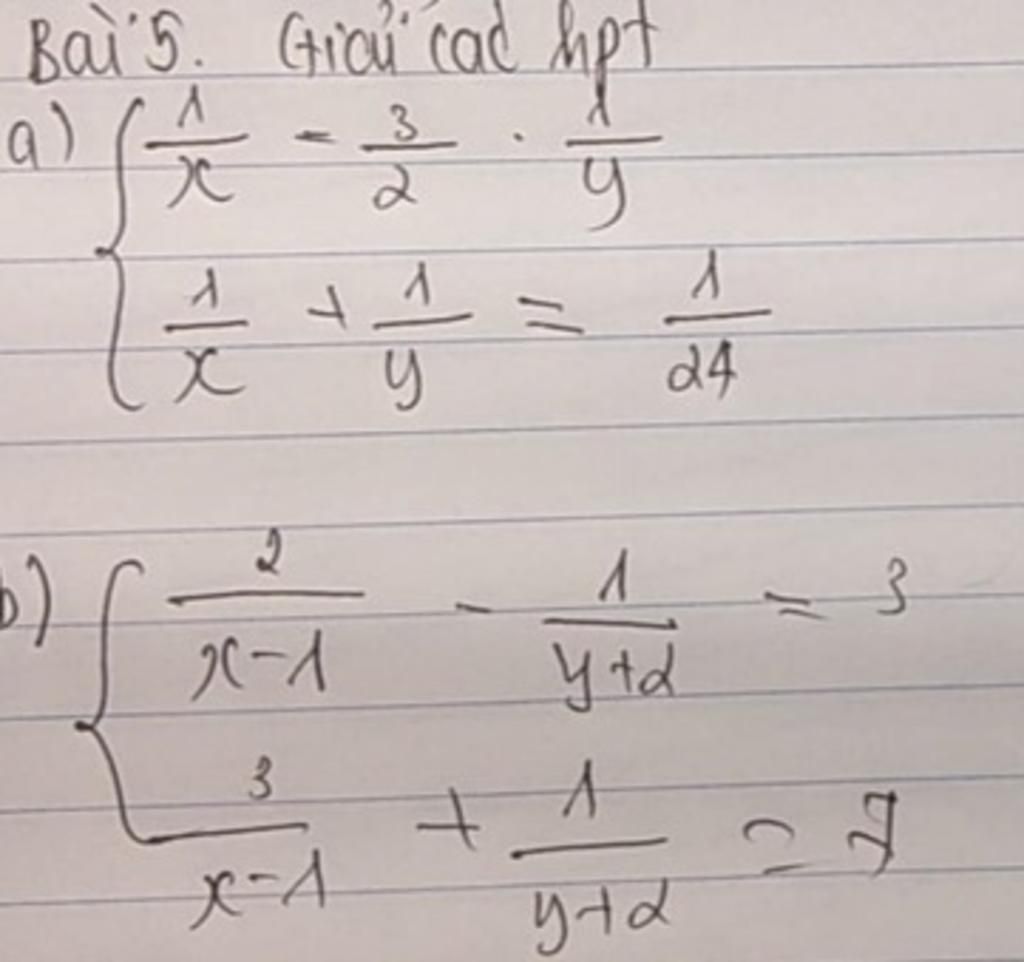 Bài 5. Giải các hpt
a) { 1/x = 3/2 . 1/y
1/x + 1/y = 1/24
b) { 2/(x-1) - 1/(y+2) = 3
3/(x-1) + 1/(y+2) = 7